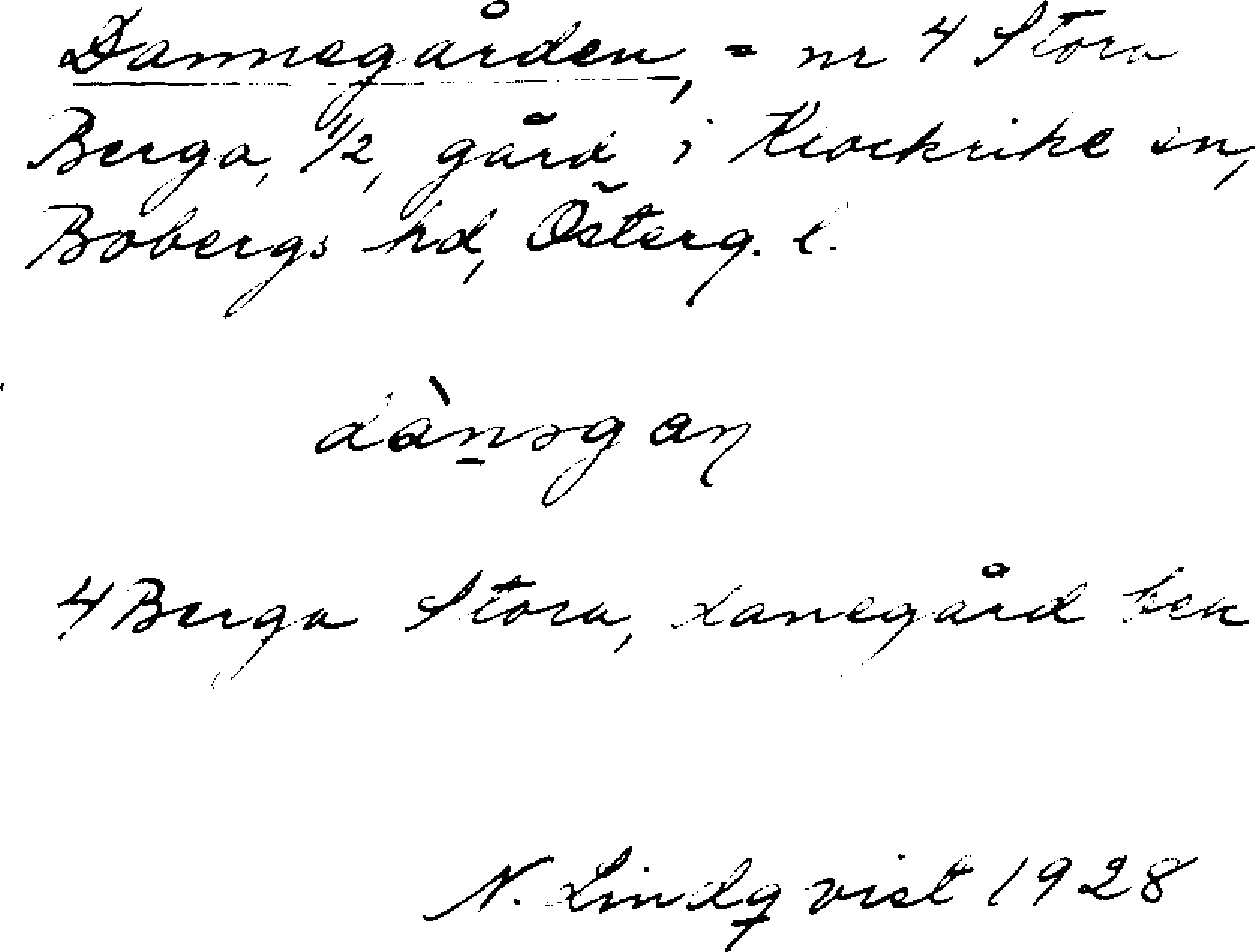 Dannegården, = nr 4 Stora
Berga, 1/2, gård i Klockrike sn,
Bobergs hd, Österg. l.
dànəgan
4 Berga Stora, danegård ken
N. Lindqvist 1928